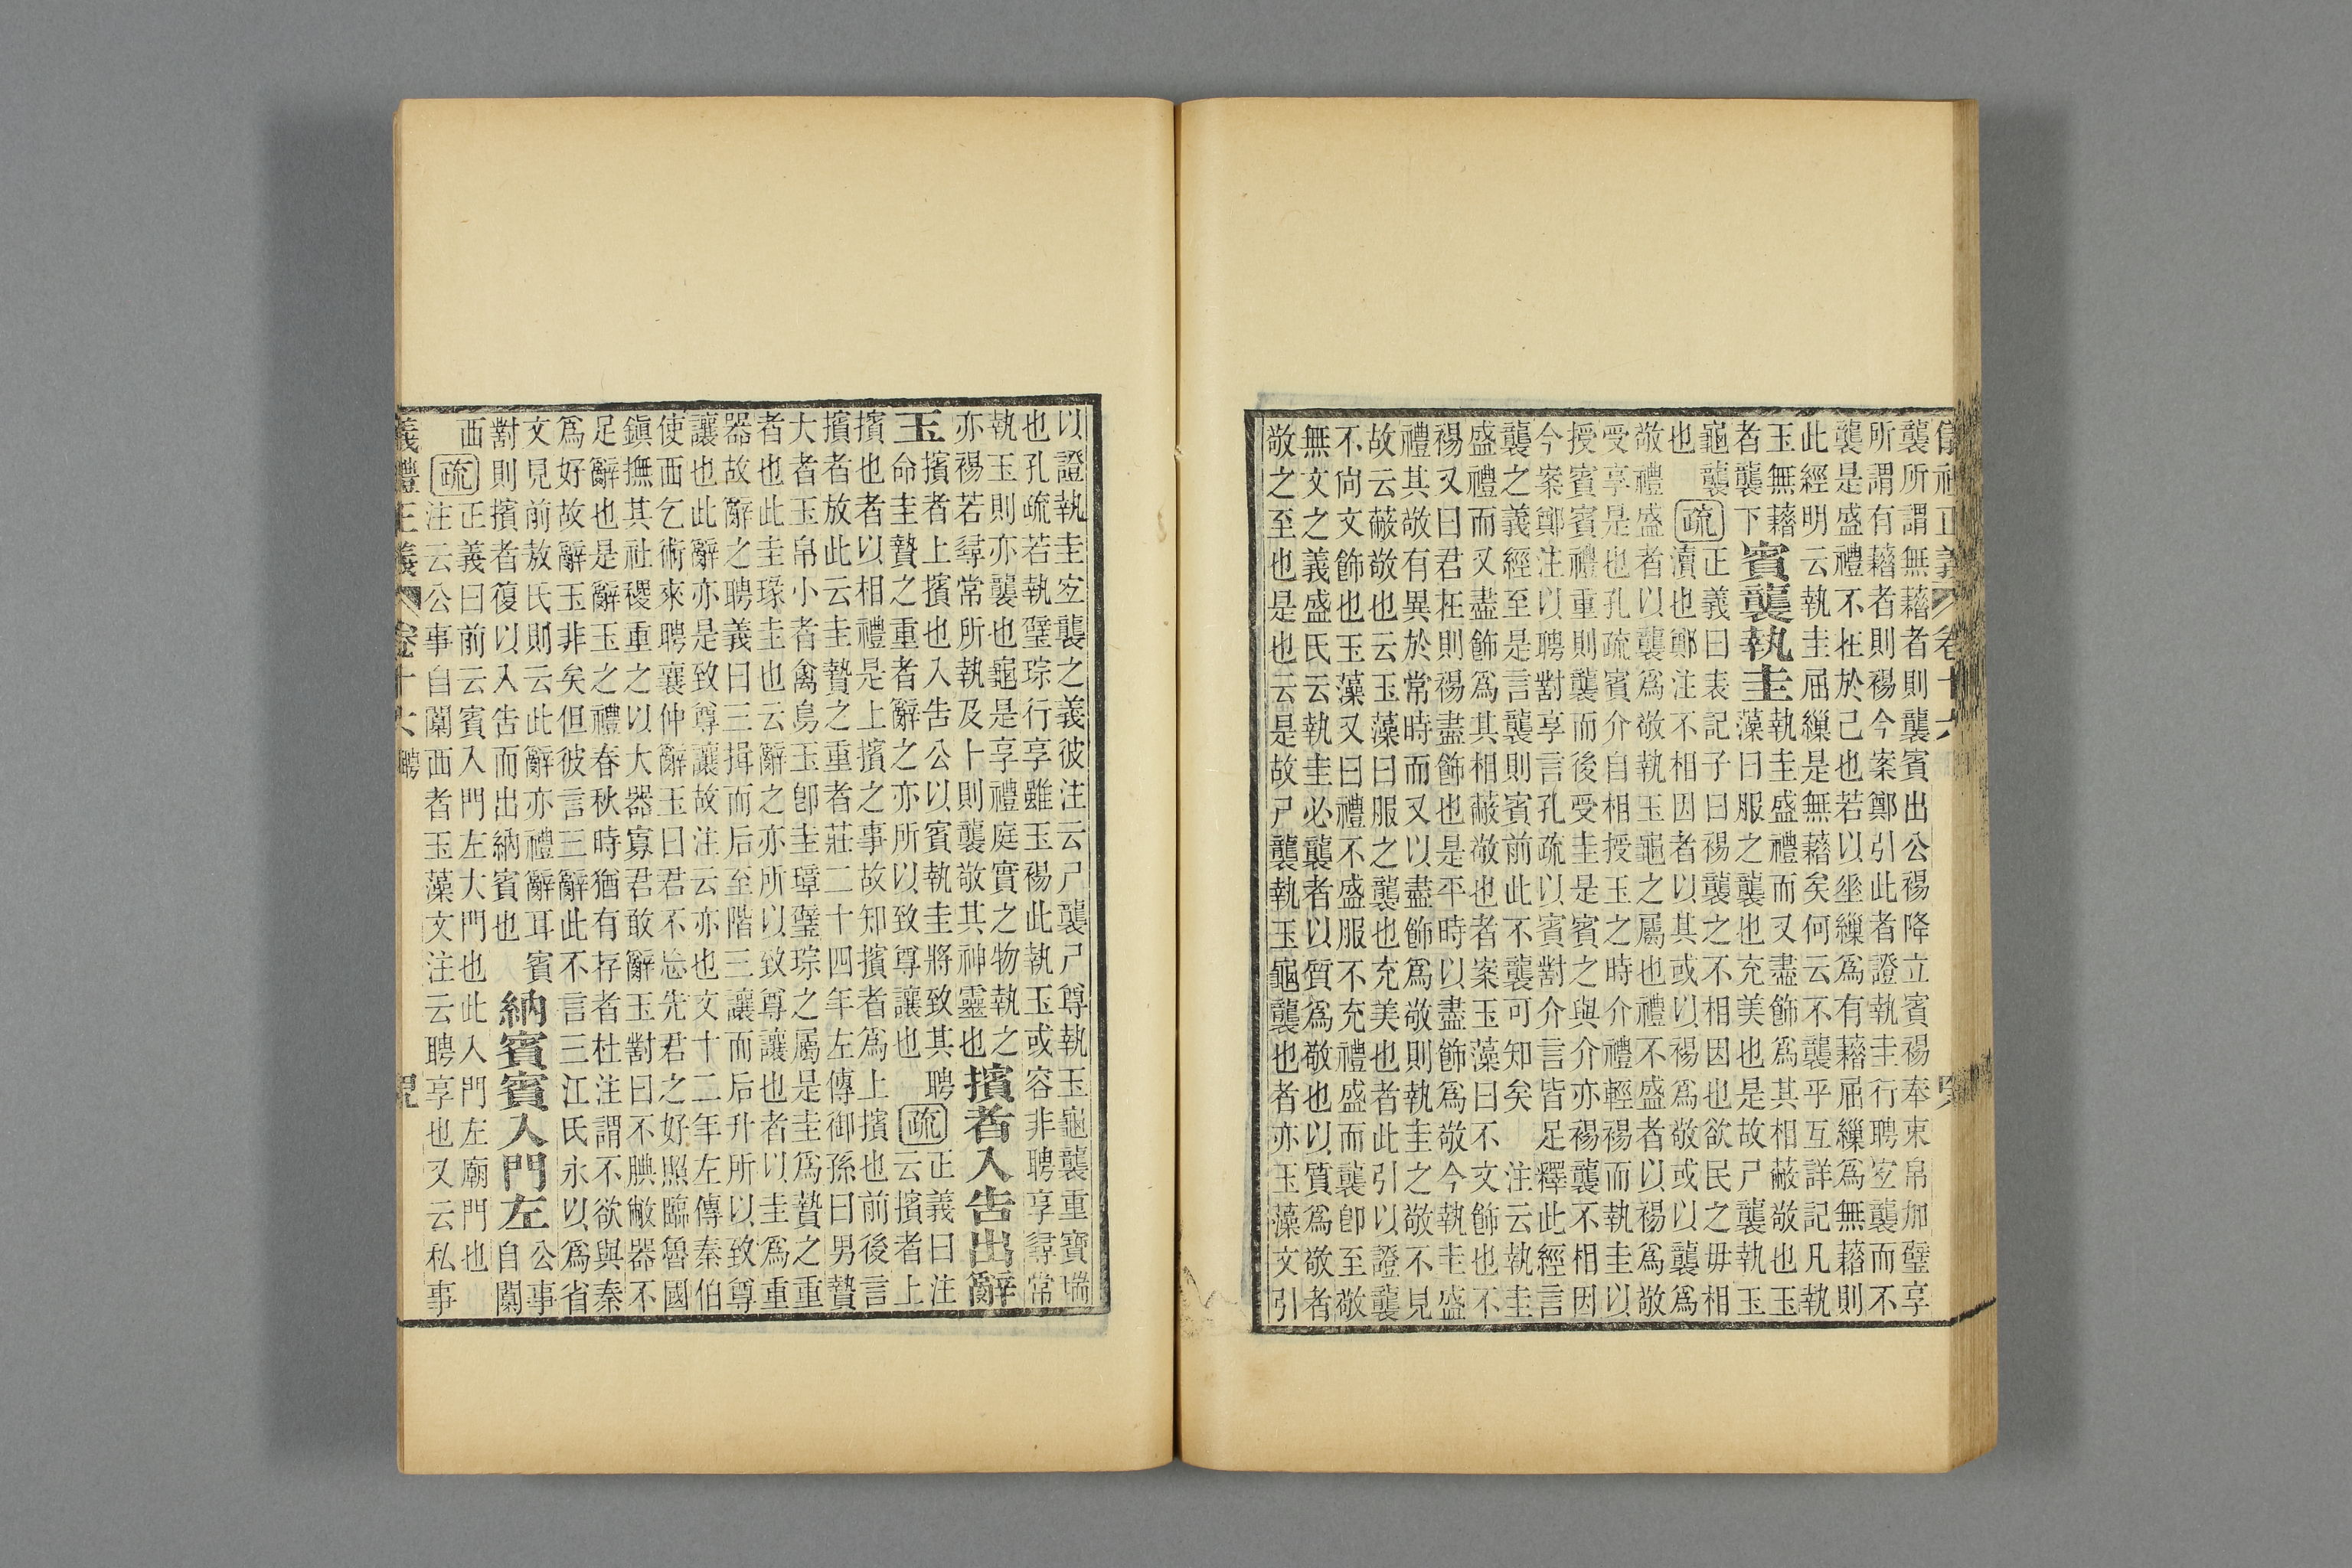 儀禮正義 卷十六
襲所謂無藉者則襲賓出公裼降立賓裼奉束帛加璧享
所謂有藉者則裼今案鄭引此者證執圭行聘宐襲而不
襲是盛禮不在於己也若以垂繅爲有藉屈繅爲無藉則
此經明云執圭屈繅是無藉矣何云不襲乎互詳記凡執
玉無藉
者襲下
賓襲執圭
執圭盛禮而又盡飾爲其相蔽敬也玉
藻曰服之襲也充美也是故尸襲執玉
龜襲
也
疏
正義曰表記子曰裼襲之不相因也欲民之毋相
瀆也鄭注不相因者以其或以裼爲敬或以襲爲
敬禮盛者以襲爲敬執玉龜之屬也禮不盛者以裼爲敬
受享是也孔疏賓介自相授玉之時介禮輕裼而執圭以
授賓賓禮重則襲而後受圭是賓之與介亦裼襲不相因
今案鄭注以聘對享言孔疏以賓對介言皆足釋此經言
襲之義經至是言襲則賓前此不襲可知矣 注云執圭
盛禮而又盡飾爲其相蔽敬也者案玉藻曰不文飾也不
裼又曰君在則裼盡飾也是平時以盡飾爲敬今執圭盛
禮其敬有異於常時而又以盡飾爲敬則執圭之敬不見
故云蔽敬也云玉藻曰服之襲也充美也者此引以證襲
不尙文飾也玉藻又曰禮不盛服不充禮盛而襲卽至敬
無文之義盛氏云執圭必襲者以質爲敬也以質爲敬者
敬之至也是也云是故尸襲執玉龜襲也者亦玉藻文引
以證執圭宐襲之義彼注云尸襲尸尊執玉龜襲重寶瑞
也孔疏若執璧琮行享雖玉裼此執玉或容非聘享尋常
執玉則亦襲也龜是享禮庭實之物執之
亦裼若尋常所執及卜則襲敬其神靈也
擯者入告出辭
玉
擯者上擯也入告公以賓執圭將致其聘
命圭贄之重者辭之亦所以致尊讓也
疏
正義曰注
云擯者上
擯也者以相禮是上擯之事故知擯者爲上擯也前後言
擯者放此云圭贄之重者莊二十四年左傳御孫曰男贄
大者玉帛小者禽鳥玉卽圭璋璧琮之屬是圭爲贄之重
者也此圭瑑圭也云辭之亦所以致尊讓也者以圭爲重
器故辭之聘義曰三揖而后至階三讓而后升所以致尊
讓也此辭亦是致尊讓故注云亦也文十二年左傳秦伯
使西乞術來聘襄仲辭玉曰君不忘先君之好照臨魯國
鎭撫其社稷重之以大器寡君敢辭玉對曰不腆敝器不
足辭也是辭玉之禮春秋時猶有存者杜注謂不欲與秦
爲好故辭玉非矣但彼言三辭此不言三江氏永以爲省
文見前敖氏則云此辭亦禮辭耳 賓
對則擯者復以入告而出納賓也
納賓賓入門左
公事
自闑
西
疏
正義曰前云賓入門左大門也此入門左廟門也
注云公事自闑西者玉藻文注云聘享也又云私事
義禮正義 卷十六 聘